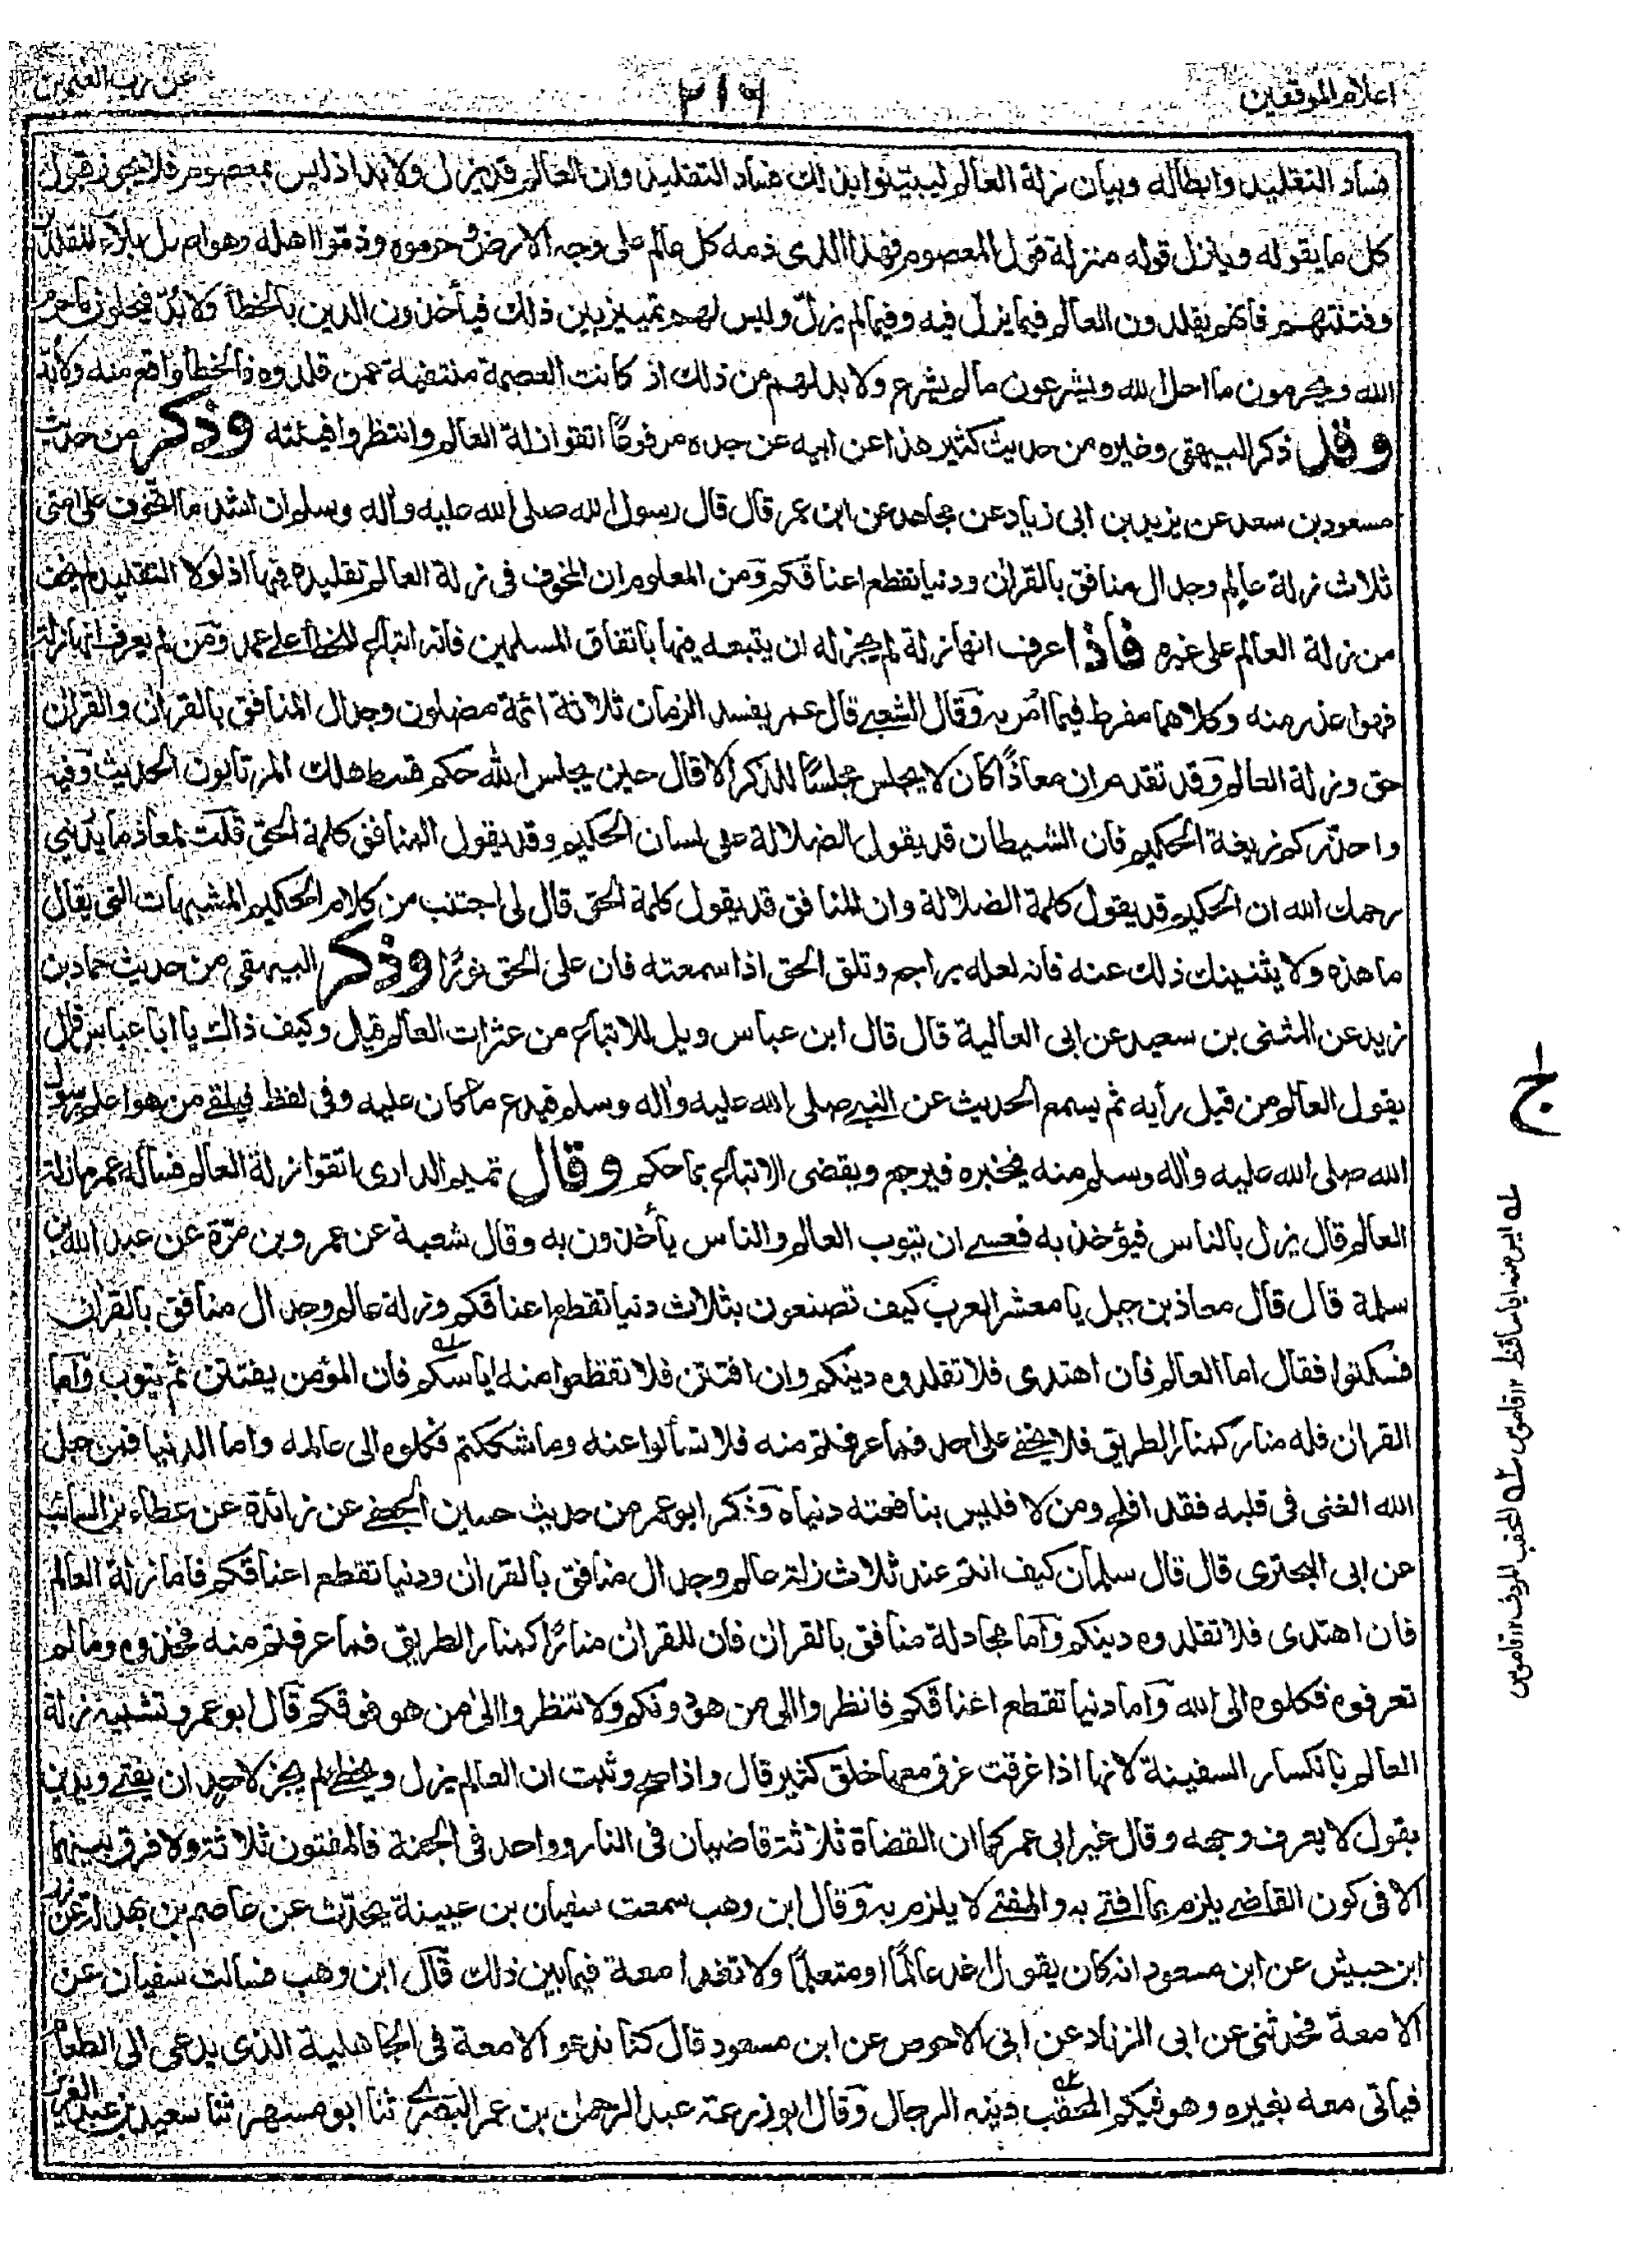 اعلام الموقعين
٢١٩
عن رب العلمين
فساد التقليد وابطاله وبيان زلة العالم ليبينوا بذلك فساد التقليد وان العالم قد يزل ولا بد اذ ليس بمعصوم فلا يجوز قبول
كل ما يقوله وينزل قوله منزلة قول المعصوم فهذا الذى ذمه كل عالم على وجه الارض وحرموه وذموا اهله وهو اصل بلاء المقلدين
وفتنتهم فانهم يقلدون العالم فيما يزل فيه وفيما لم يزل وليس لهم تمييز بين ذلك فيأخذون الدين بالخطأ ولا بد فيحلون ما حرم
الله ويحرمون ما احل الله ويشرعون ما لم يشرع ولا بد لهم من ذلك اذ كانت العصمة منتفية عمن قلدوه فالخطأ واقع منه ولا بد
وقد ذكر البيهقى وغيره من حديث كثير هذا عن ابيه عن جده مرفوعًا اتقوا زلة العالم وانتظروا فيئته وذكر من حديث
مسعود بن سعد عن يزيد بن ابى زياد عن مجاهد عن ابن عمر قال قال رسول الله صلى الله عليه وآله وسلم ان اشد ما اتخوف على امتى
ثلاث زلة عالم وجدال منافق بالقرآن ودنيا تقطع اعناقكم ومن المعلوم ان المخوف فى زلة العالم تقليده فيها اذ لولا التقليد لم يخف
من زلة العالم على غيره فاذا عرف انها زلة لم يجز له ان يتبعه فيها باتفاق المسلمين فانه اتباع للخطأ على عمد ومن لم يعرف انها زلة
فهو اعذر منه وكلاهما مفرط فيما امر به وقال الشعبى قال عمر يفسد الزمان ثلاثة ائمة مضلون وجدال المنافق بالقرآن والقرآن
حق وزلة العالم وقد تقدم ان معاذًا كان لا يجلس مجلسًا للذكر الا قال حين يجلس الله حكم قسط هلك المرتابون الحديث وفيه
واحذركم زيغة الحكيم فان الشيطان قد يقول الضلالة على لسان الحكيم وقد يقول المنافق كلمة الحق قلت لمعاذ ما يدرينى
رحمك الله ان الحكيم قد يقول كلمة الضلالة وان المنافق قد يقول كلمة الحق قال لى اجتنب من كلام الحكيم المشبهات التى يقال
ما هذه ولا يثنينك ذلك عنه فانه لعله يراجع وتلق الحق اذا سمعته فان على الحق نورًا وذكر البيهقى من حديث حماد بن
زيد عن المثنى بن سعيد عن ابى العالية قال قال ابن عباس ويل للاتباع من عثرات العالم قيل وكيف ذاك يا ابا عباس قال
يقول العالم من قبل رأيه ثم يسمع الحديث عن النبى صلى الله عليه وآله وسلم فيدع ما كان عليه وفى لفظ فيلقى من هو اعلم برسول
الله صلى الله عليه وآله وسلم منه فيخبره فيرجع ويقضى الاتباع بما حكم وقال تميم الدارى اتقوا زلة العالم فسأله عمر ما زلة
العالم قال يزل بالناس فيؤخذ به فعسى ان يتوب العالم والناس يأخذون به وقال شعبة عن عمرو بن مرّة عن عبد الله بن
سلمة قال قال معاذ بن جبل يا معشر العرب كيف تصنعون بثلاث دنيا تقطع اعناقكم وزلة عالم وجدال منافق بالقرآن
فسكتوا فقال اما العالم فان اهتدى فلا تقلدوه دينكم وان افتتن فلا تقطعوا منه اياسكم فان المؤمن يفتتن ثم يتوب واما
القرآن فله منار كمنار الطريق فلا يخفى على احد فما عرفتم منه فلا تسألوا عنه وما شككتم فكلوه الى عالمه واما الدنيا فمن جعل
الله الغنى فى قلبه فقد افلح ومن لا فليس بنافعته دنياه وذكر ابو عمر من حديث حسين الجعفى عن زائدة عن عطاء بن السائب
عن ابى البخترى قال قال سلمان كيف انتم عند ثلاث زلة عالم وجدال منافق بالقرآن ودنيا تقطع اعناقكم فاما زلة العالم
فان اهتدى فلا تقلدوه دينكم وأما مجادلة منافق بالقرآن فان للقرآن منارًا كمنار الطريق فما عرفتم منه فخذوه وما لم
تعرفوه فكلوه الى الله وأما دنيا تقطع اعناقكم فانظروا الى من هو دونكم ولا تنظروا الى من هو فوقكم قال ابو عمر وتشبيه زلة
العالم بانكسار السفينة لانها اذا غرقت غرق معها خلق كثير قال واذا صح وثبت ان العالم يزل ويخطئ لم يجز لاحد ان يفتى ويدين
بقول لا يعرف وجهه وقال غير ابى عمر كما ان القضاة ثلاثة قاضيان فى النار وواحد فى الجنة فالمفتون ثلاثة ولا فرق بينهما
الا فى كون القاضى يلزم بما افتى به والمفتى لا يلزم به وقال ابن وهب سمعت سفيان بن عيينة يحدّث عن عاصم بن بهدلة عن زر
ابن حبيش عن ابن مسعود انه كان يقول اغد عالمًا او متعلمًا ولا تغد امعة فيما بين ذلك قال ابن وهب فسألت سفيان عن
الامعة فحدثنى عن ابى الزناد عن ابى الاحوص عن ابن مسعود قال كنا ندعو الامعة فى الجاهلية الذى يدعى الى الطعام
فيأتى معه بغيره وهو فيكم المحقب دينه الرجال وقال ابو زرعة عبد الرحمن بن عمر البصرى ثنا ابو مسهر ثنا سعيد بن عبد العزيز
ج
له ايس منه اياسا قنط ١٢ قاموس له المحقب المردف ١٢ قاموس